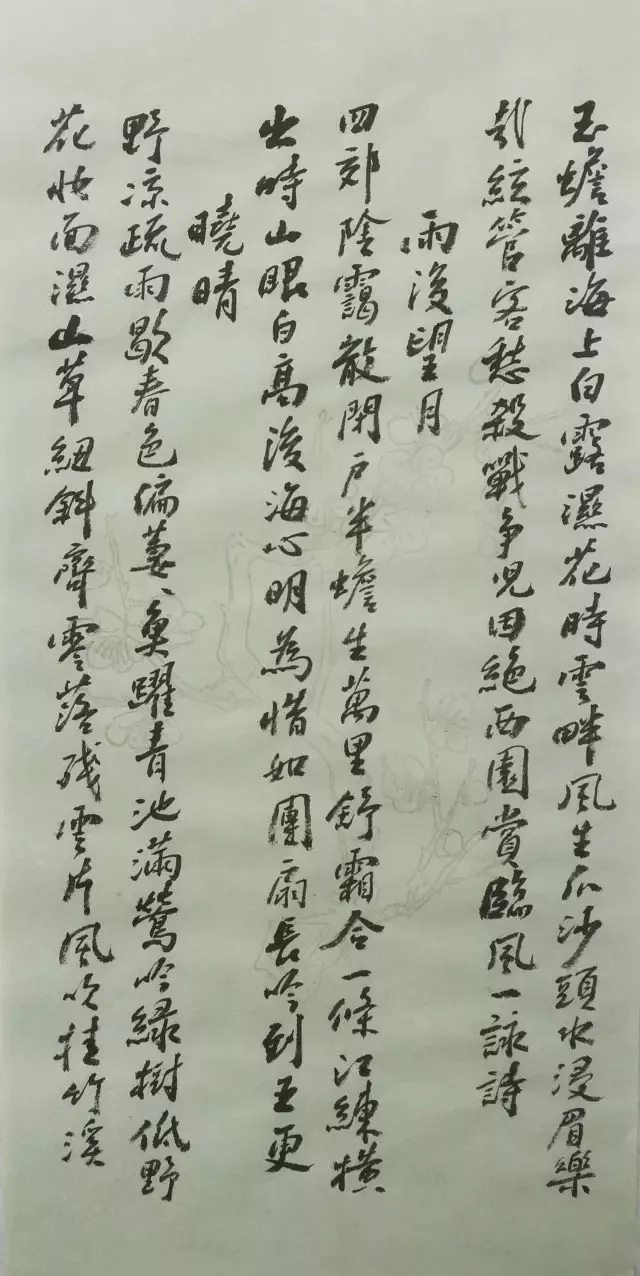 玉蟾離海上白露濕花時雲畔風生爪沙頭水浸眉樂
哉絃管客愁殺戰爭兒因絕西園賞臨風一詠詩
雨後望月
四郊陰靄散開戶半蟾生萬里舒霜合一條江練橫
出時山眼白高後海心明為惜如團扇長吟到五更
曉晴
野凉疏雨歇春色偏萋々魚躍青池滿鶯吟綠樹低野
花妝面濕山草紐斜齊零落殘雲片風吹挂竹溪